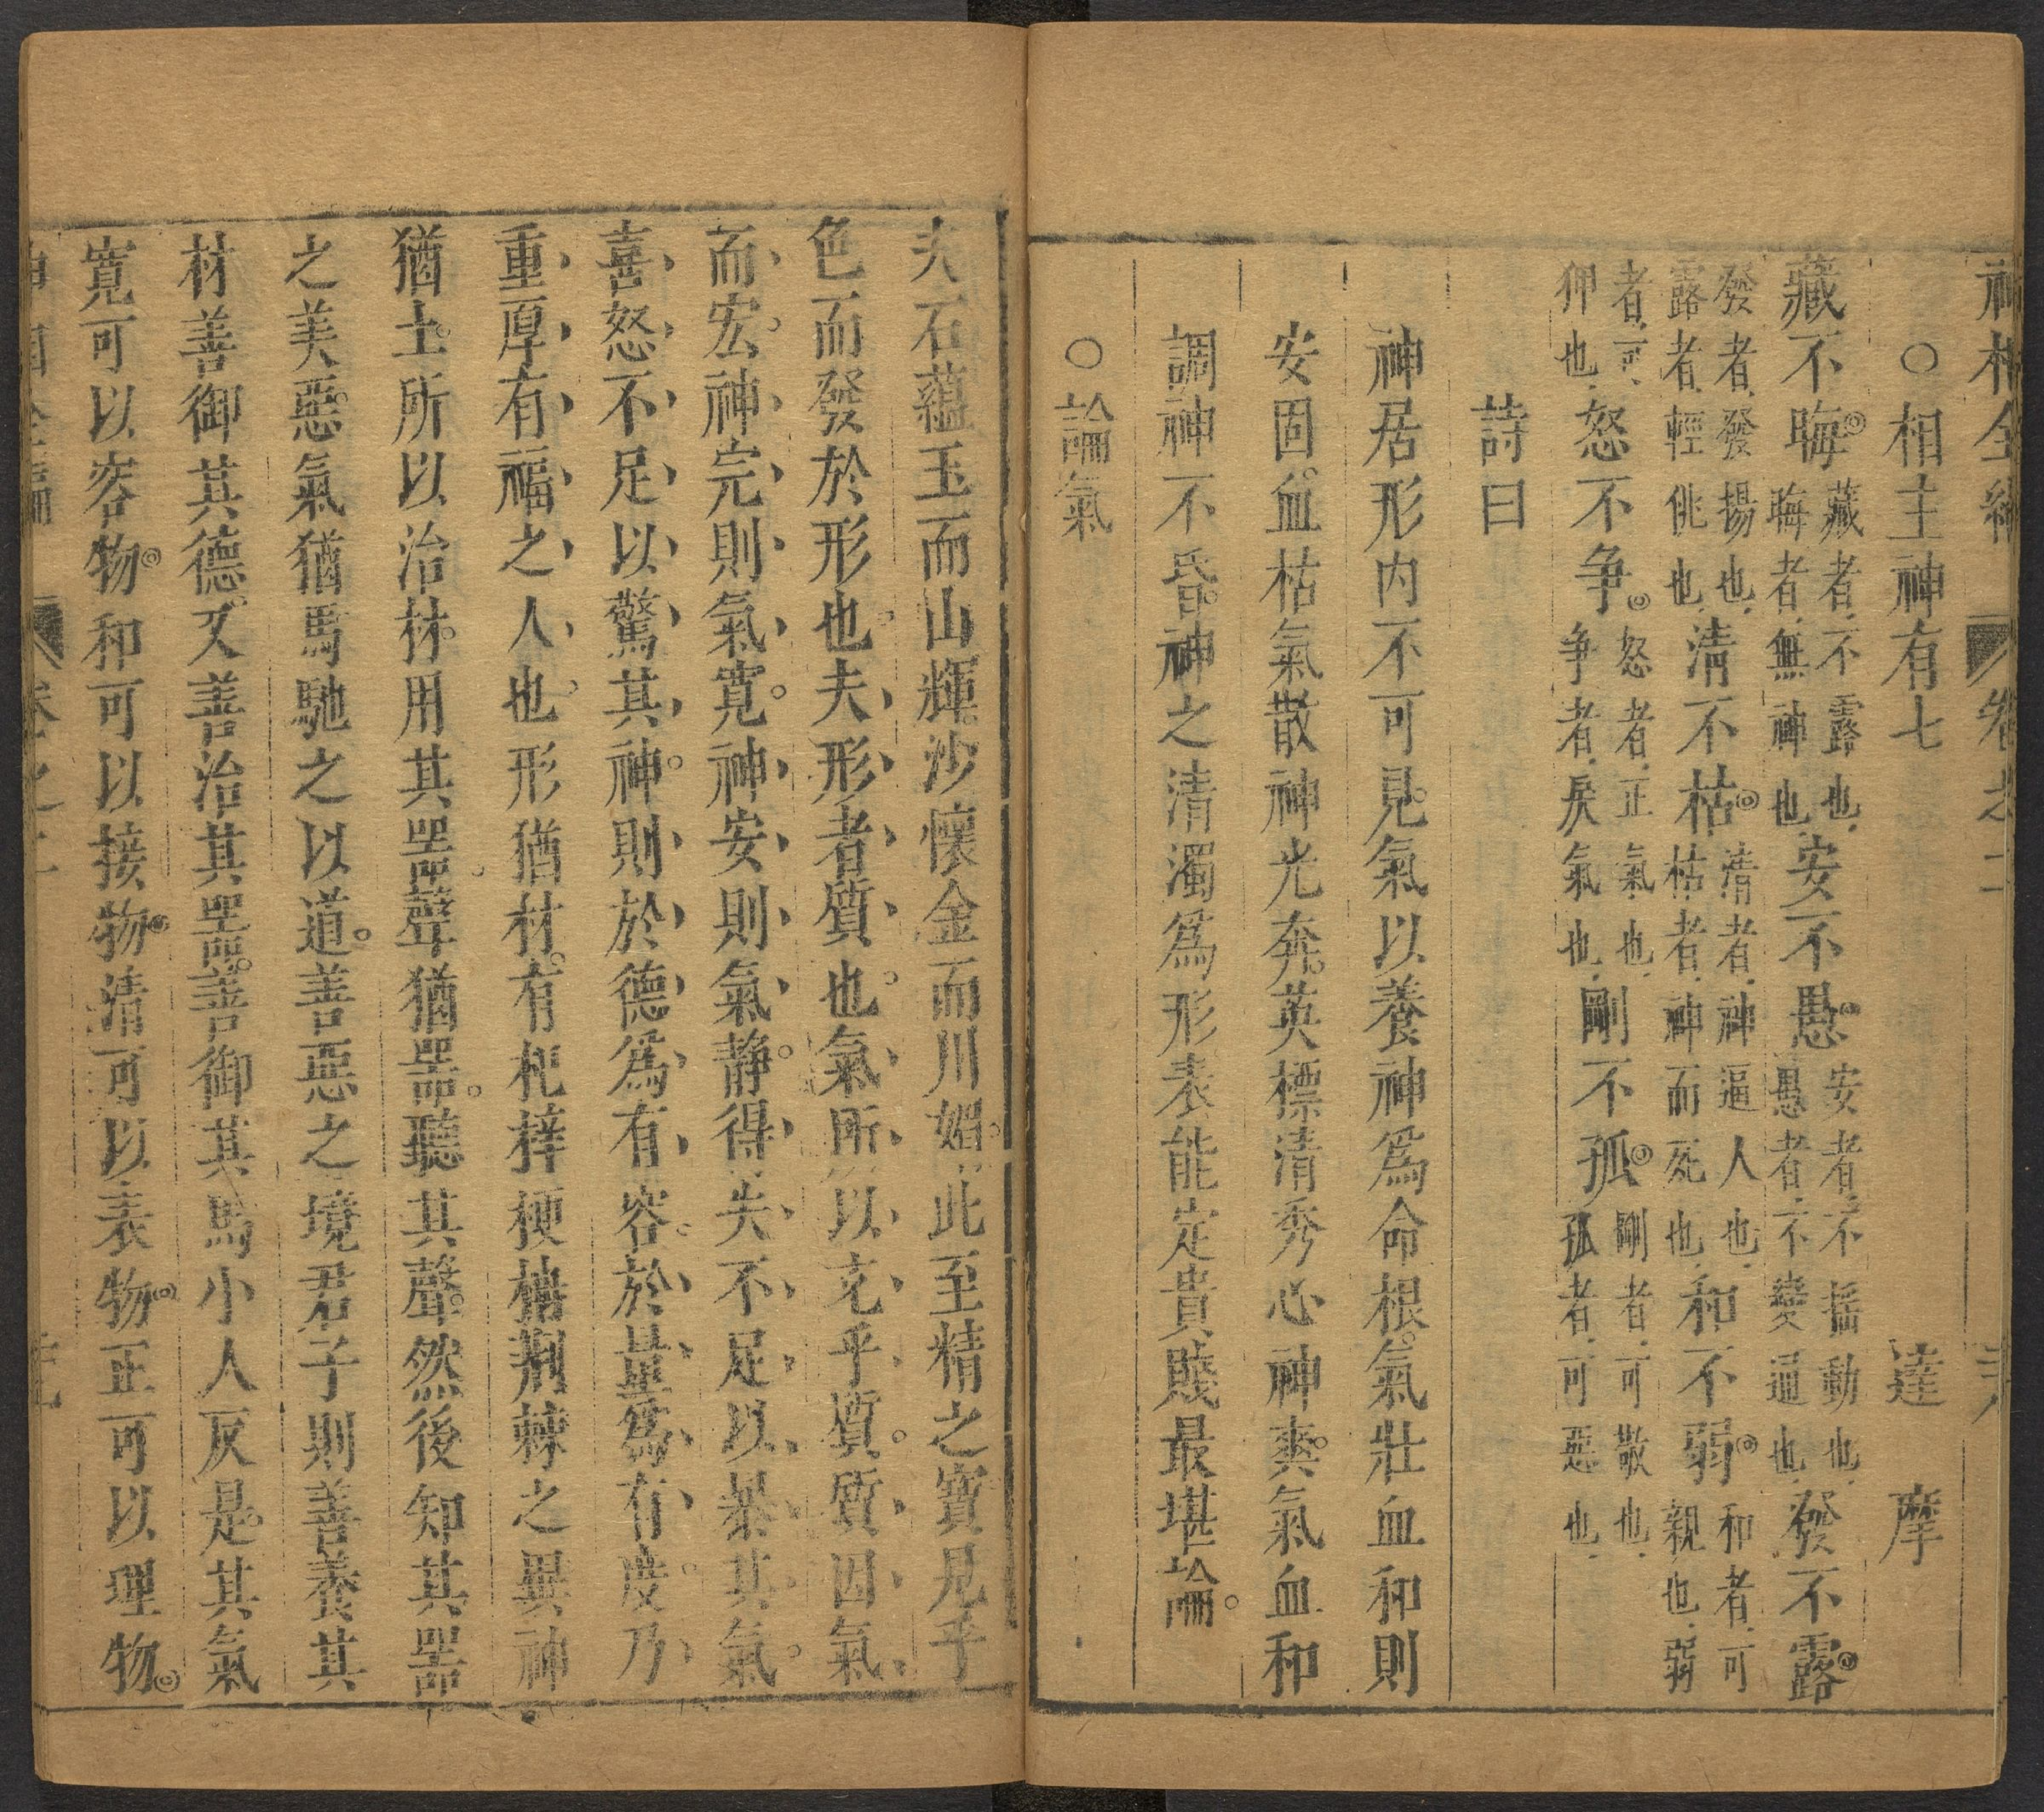 神相全編 卷之二
○相主神有七 達摩
藏不晦藏者不露也晦者無神也安不愚安者不搖動也愚者不變通也發不露
發者發揚也露者輕佻也清不枯清者神逼人也枯者神而死也和不弱和者可親也弱
者可狎也怒不爭怒者正氣也爭者戾氣也剛不孤剛者可敬也孤者可惡也
詩曰
神居形内不可見氣以養神爲命根氣壯血和則
安固血枯氣散神光奔英標清秀心神爽氣血和
調神不昏神之清濁爲形表能定貴賤最堪論
○論氣
夫石蘊玉而山輝沙懷金而川媚此至精之寳見乎
色而發於形也夫形者質也氣所以充乎質質因氣
而宏神完則氣寛神安則氣静得失不足以暴其氣
喜怒不足以驚其神則於德爲有容於量爲有度乃
重厚有福之人也形猶材有杞梓梗楠荆棘之異神
猶土所以治材用其器聲猶器聽其聲然後知其器
之美惡氣猶馬馳之以道善惡之境君子則善養其
材善御其德又善治其器善御其馬小人反是其氣
寛可以容物和可以接物清可以表物正可以理物